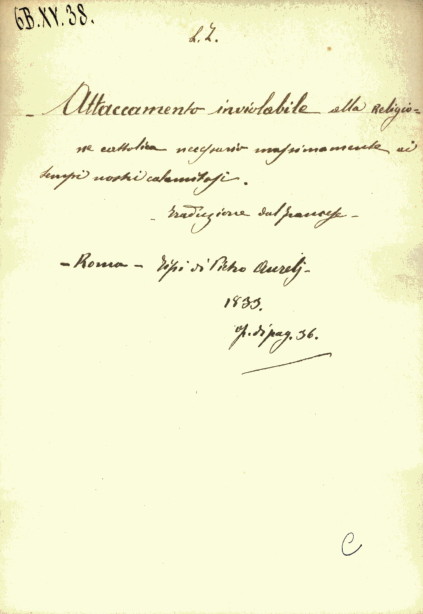 6B.XV.38.
L. Z.
- Attaccamento inviolabile alla Religio=
ne cattolica necessario massimamente ai
tempi nostri calamitosi.
- traduzione dal francese -
- Roma - tipi di Pietro Aurelj -
1833.
op. di pag. 36.
C